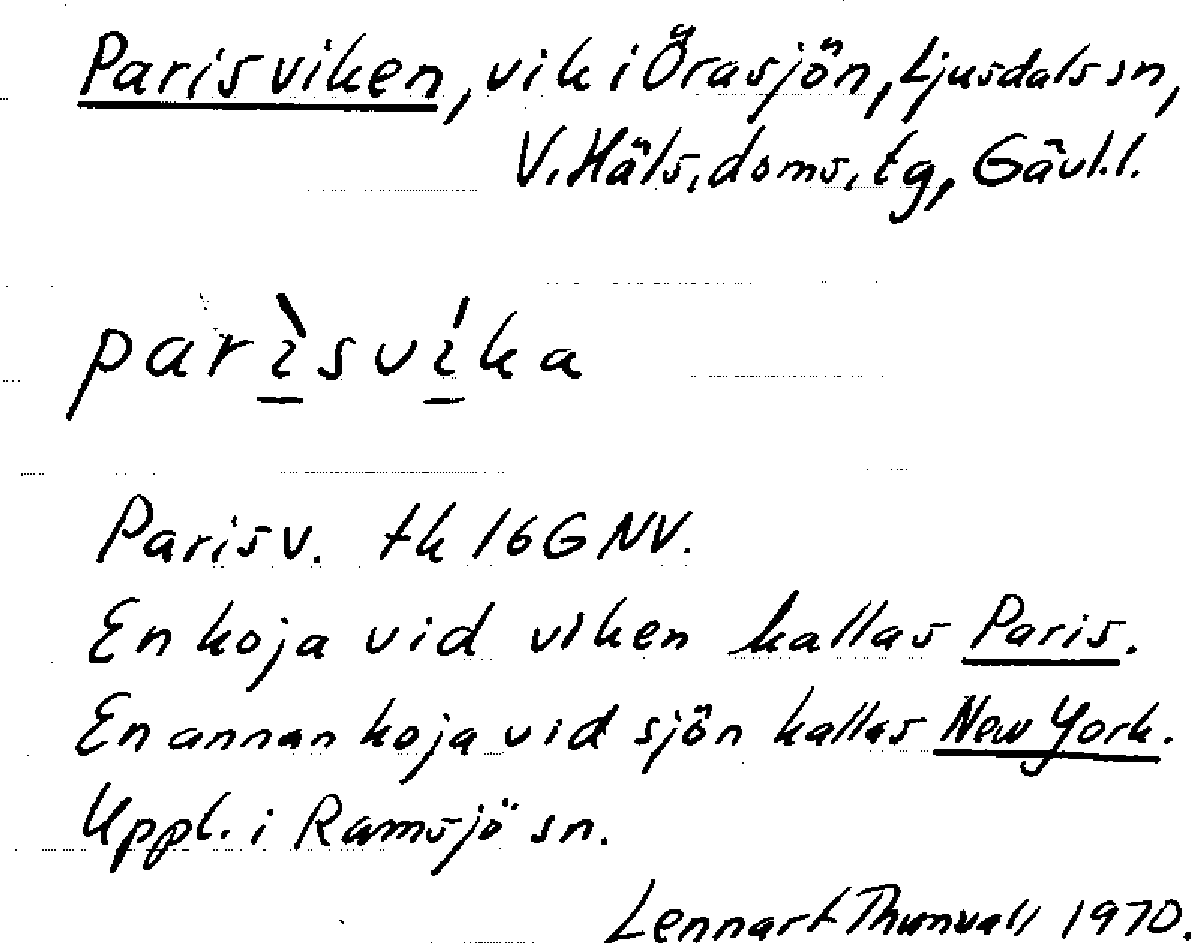 Parisviken, vik i Örasjön, Ljusdals sn,
V. Häls. doms. tg, Gävl.l.
parìsvíka
Parisv. tk 16G NV.
En koja vid viken kallas Paris.
En annan koja vid sjön kallas New York.
Uppl. i Ramsjö sn.
Lennart Thunvall 1970.